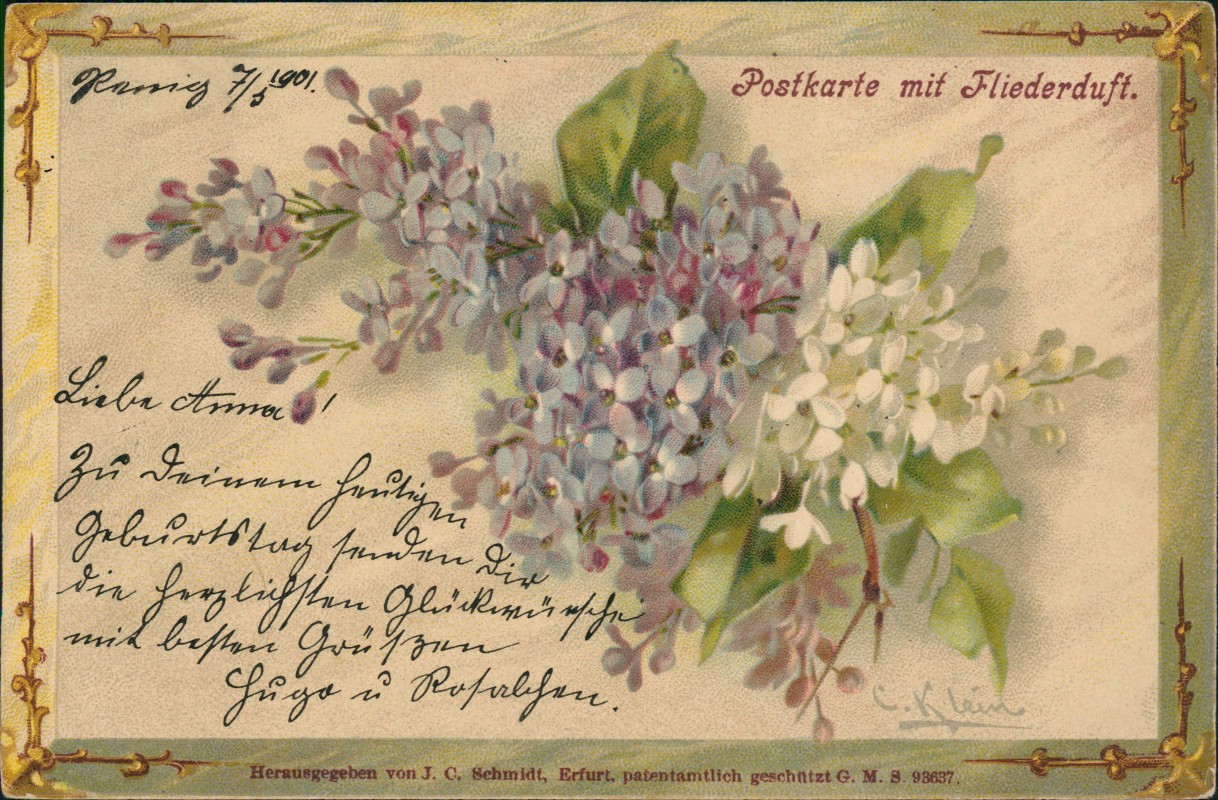 Penig 7/5 1901.
Postkarte mit Fliederduft.
Liebe Anna!
Zu Deinem heutigen
Geburtstag senden Dir
die herzlichsten Glückwünsche
mit besten Grüßen
Hugo u Rosalchen.
C. Klein.
Herausgegeben von J. C. Schmidt, Erfurt, patentamtlich geschützt G. M. S. 93637.